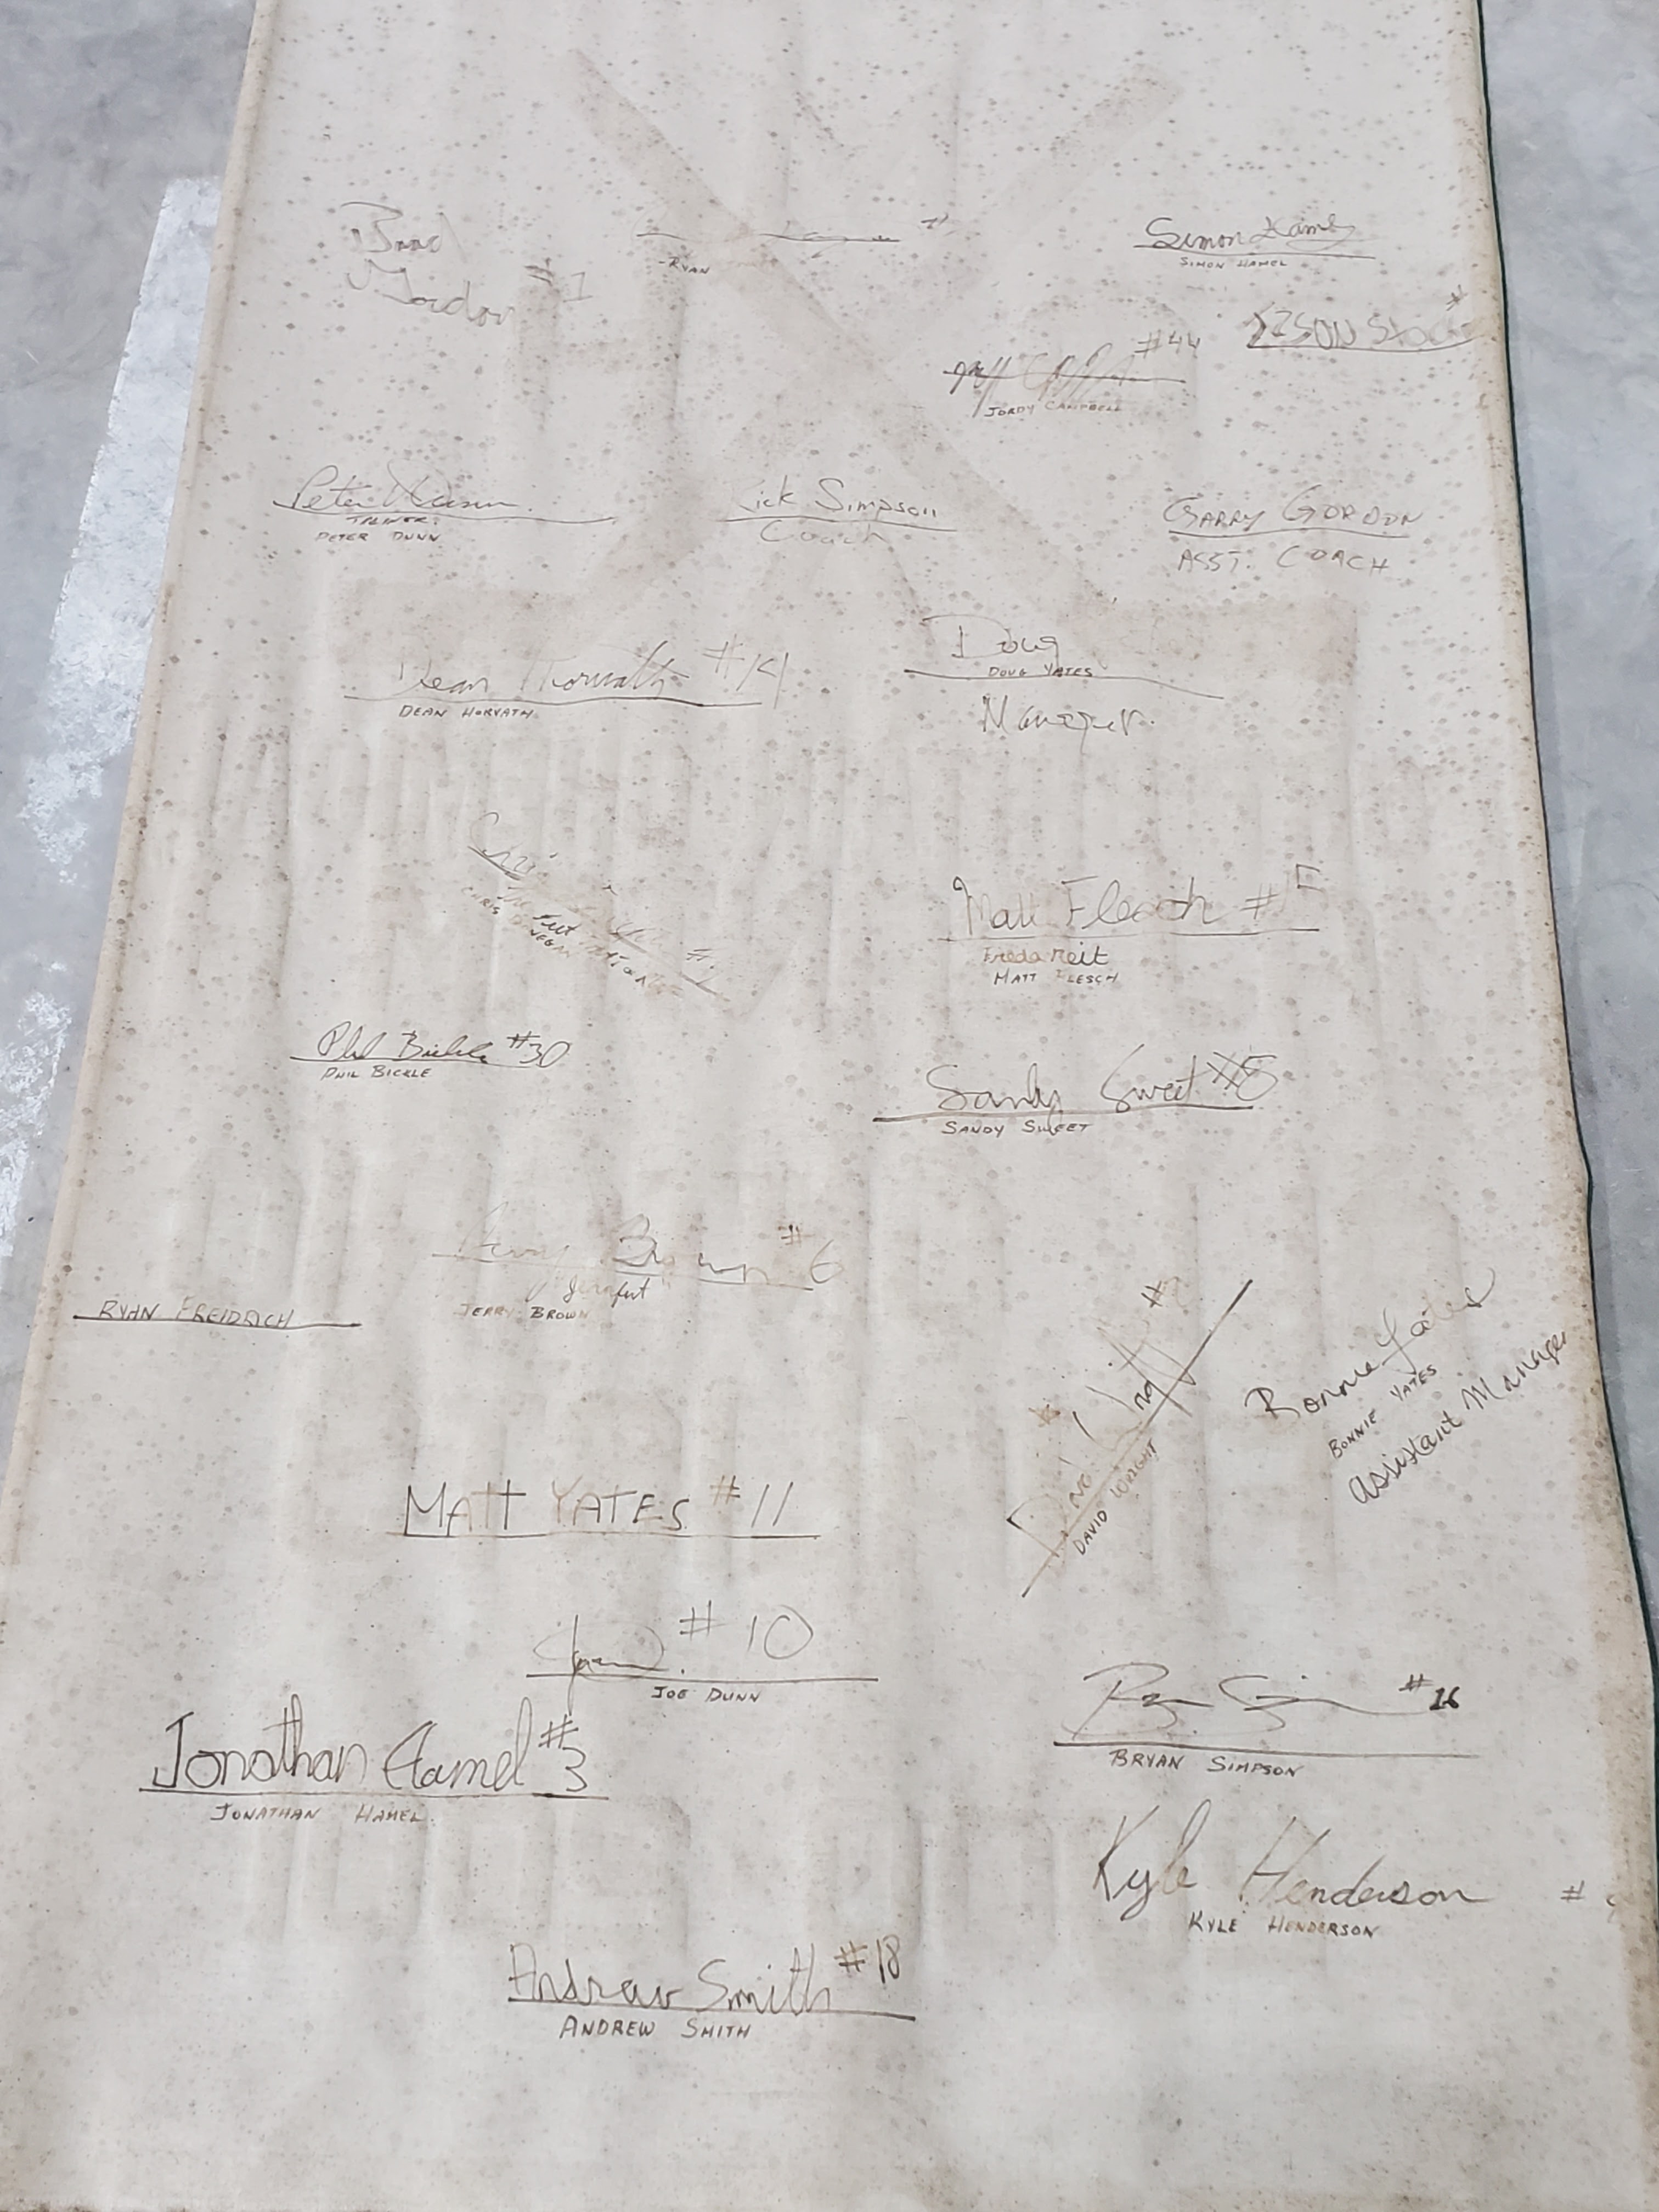 Brad
Gordon #1
RYAN
Simon Hamel
SIMON HAMEL
#44
JORDY CAMPBELL
#
Peter Dunn
TRAINER
PETER DUNN
Rick Simpson
Coach
GARRY GORDON
ASST. COACH
Dean Horvath #14
DEAN HORVATH
Doug
DOUG YATES
Manager
CHRIS
Matt Flesch #
MATT FLESCH
Phil Bickle #30
PHIL BICKLE
Sandy Sweet #5
SANDY SWEET
Jerry Brown #6
JERRY BROWN
RYAN FREIDRICH
David Wright #
DAVID WRIGHT
Bonnie Yates
BONNIE YATES
Assistant Manager
MATT YATES #11
#10
JOE DUNN
Jonathan Hamel #3
JONATHAN HAMEL
#16
BRYAN SIMPSON
Kyle Henderson #
KYLE HENDERSON
Andrew Smith #18
ANDREW SMITH